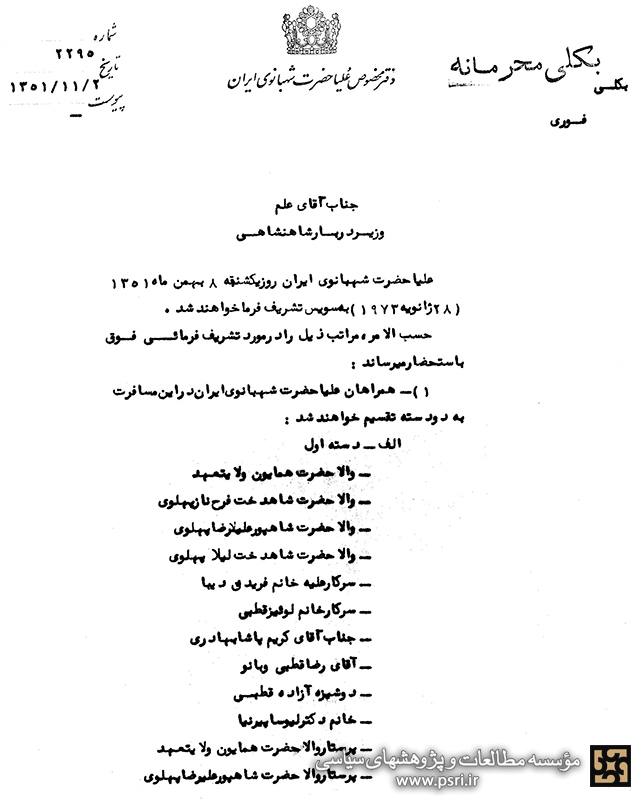 شماره
۲۲۹۵
تاریخ
۱۳۵۱/۱۱/۲
پیوست
ــ
دفتر مخصوص علیا حضرت شهبانوی ایران
بکلی محرمانه
بکلــی
فــوری
جناب آقای علم
وزیــر دربار شاهنشاهــی
علیا حضرت شهبانوی ایران روز یکشنبه ۸ بهمن ماه ۱۳۵۱
(۲۸ ژانویه ۱۹۷۳) به سویس تشریف فرما خواهند شد .
حسب الامر، مراتب ذیل را در مورد تشریف فرمائــی فوق
باستحضار میرساند :
۱) ــ همراهان علیا حضرت شهبانوی ایران در این مسافرت
به دو دسته تقسیم خواهند شد :
الف ــ دسته اول
ــ والا حضرت همایون ولایتعهد
ــ والا حضرت شاهدخت فرحناز پهلوی
ــ والا حضرت شاهپور علیرضا پهلوی
ــ والا حضرت شاهدخت لیلا پهلوی
ــ سرکار علیه خانم فریده دیبا
ــ سرکار خانم لوئیز قطبی
ــ جناب آقای کریم پاشا بهادری
ــ آقای رضا قطبی و بانو
ــ دوشیزه آزاده قطبــی
ــ خانم دکتر لیوسا پیرنیا
ــ پرستار والا حضرت همایون ولایتعهد
ــ پرستار والا حضرت شاهپور علیرضا پهلوی
مؤسسه مطالعات و پژوهشهای سیاسی
www.psri.ir